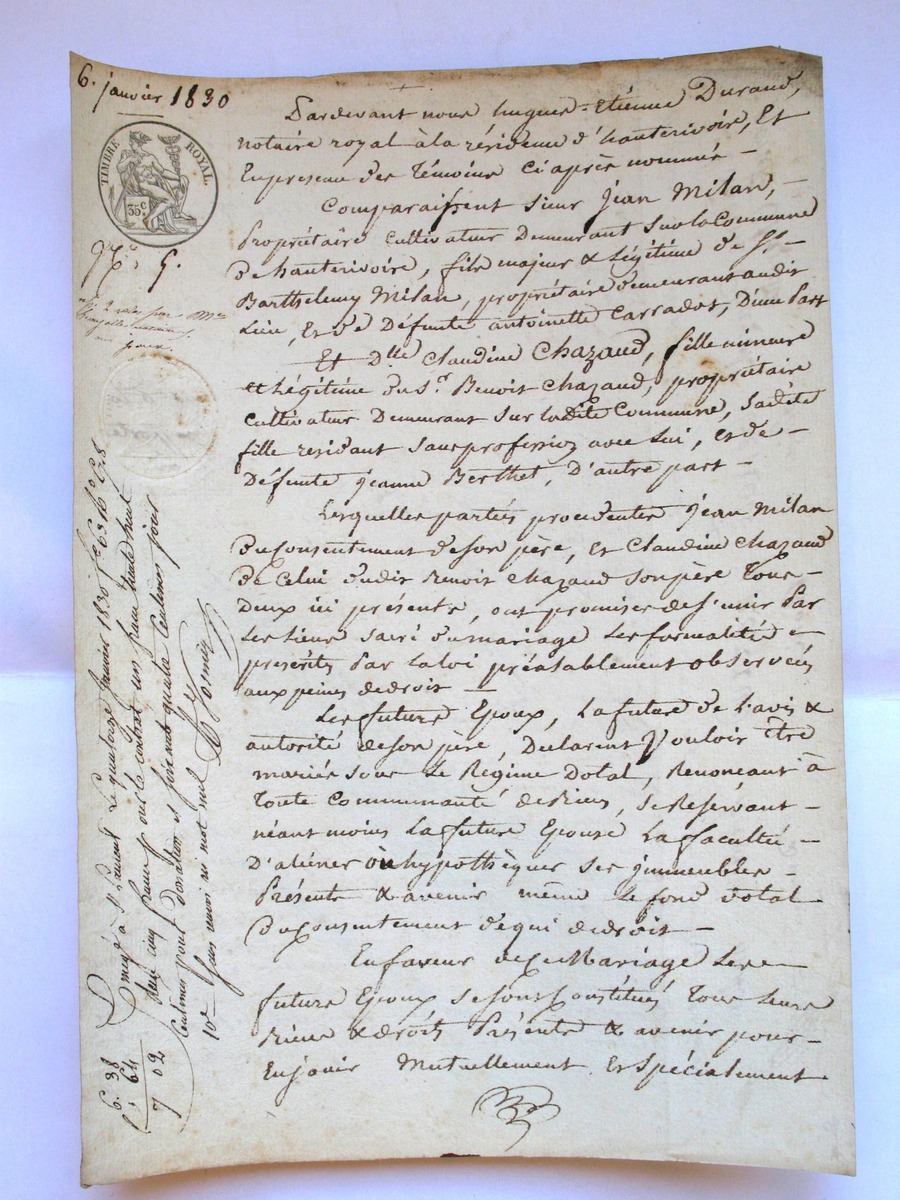 6. janvier 1830
TIMBRE ROYAL.
35c
Pardevant nous hugues-Etienne Durand,
notaire royal à la résidence d'hauterivoire, Et
En presence des Témoins Ci après nommés —
Comparaissent Sieur Jean Milan, —
Propriétaire Cultivateur Demeurant sur la Commune
De hauterivoire, fils majeur & Légitime de Sr —
Barthelemy Milan, propriétaire demeurant audit
Lieu, Et de Défunte antoinette Carradot, D'une Part
Et Dlle Claudine Chazaud, fille mineure
et Légitime du Sr. Benoit Chazaud, propriétaire
Cultivateur Demeurant Sur ladite Commune, Sadite
fille residant Sans profession avec Lui, et de —
Défunte Jeanne Berthet, D'autre part —
Lesquelles parties procedentes Jean Milan
Du Consentement de son père, et Claudine Chazaud
De Celui dudit Benoit Chazaud son père Tous —
Deux ici présents, ont promises de s'unir Par
Les liens sacré du mariage Les formalités
prescrits Par la loi préalablement observées
aux peines de droit —
Les future Epoux, La future de L'avis &
autorité de son père, Declarent Vouloir être
mariés sous Le Régime Dotal, Renoncant à
Toute Communauté de Biens, se Reservant —
néant moins La future Epouse La faculté —
D'aliéner ou hypothèquer ses immeubles —
Présents & avenir même le fond Dotal
Du Consentement de qui de droit —
En faveur de ce Mariage Les
future Epoux se sont Constitués Tous leurs
Biens & droits Présents & avenir pour —
En jouir Mutuellement, Et Spécialement
Enregé à St Laurent Le quatorze Janvier 1830
Reçu cinq francs pour le contrat un franc trente huit
Centimes pour donation et soixante quatre Centimes pour
10e Sans renvoi ni mot nul
6. 38
". 64
7 02